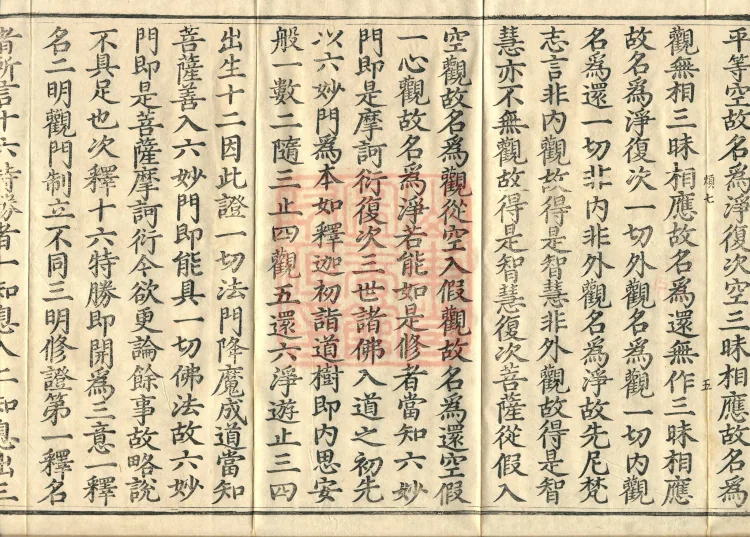 平等空故名爲淨復次空三昧相應故名爲
煩七 五
觀無相三昧相應故名爲還無作三昧相應
故名爲淨復次一切外觀名爲觀一切內觀
名爲還一切非內非外觀名爲淨故先尼梵
志言非內觀故得是智慧非外觀故得是智
慧亦不無觀故得是智慧復次菩薩從假入
空觀故名爲觀從空入假觀故名爲還空假
一心觀故名爲淨若能如是修者當知六妙
門即是摩訶衍復次三世諸佛入道之初先
以六妙門爲本如釋迦初詣道樹即內思安
般一數二隨三止四觀五還六淨遊止三四
出生十二因此證一切法門降魔成道當知
菩薩善入六妙門即能具一切佛法故六妙
門即是菩薩摩訶衍今欲更論餘事故略說
不具足也次釋十六特勝即開爲三意一釋
名二明觀門制立不同三明修證第一釋名
者所言十六特勝者一知息入二知息出三